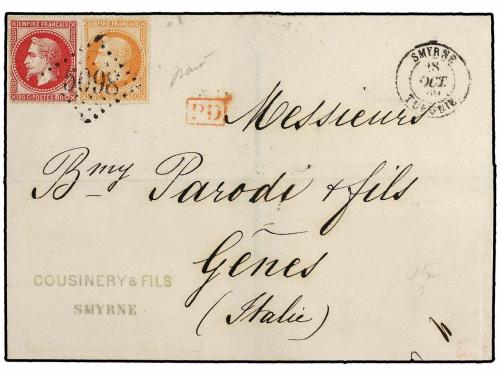 EMPIRE FRANÇAIS EMPIRE FRANÇAIS
80 C POSTES 80 C
5098
SMYRNE
18
OCT.
TURQUIE
PD
Messieurs
Bmy Parodi & fils
Gênes
(Italie)
COUSINERY & FILS
SMYRNE